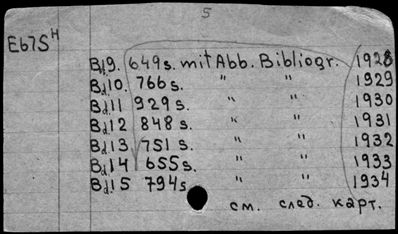 5
E67S^H
Bd.9. 649s. mit Abb. Bibliogr. 1928
Bd.10. 766s. " " 1929
Bd.11 929s. " " 1930
Bd.12 848s. " " 1931
Bd.13 751s. " " 1932
Bd.14 655s. " " 1933
Bd.15 794s " " 1934
см. след. карт.